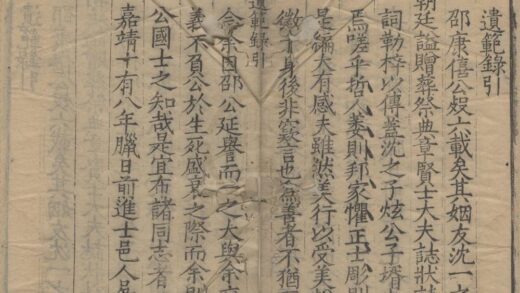 遺範錄引
邵康僖公歿六載矣其姻友沈一之
朝廷謚贈葬祭典章賢士大夫誌狀
詞勒梓以傳蓋沈之子炫公子壻
焉嗟乎哲人萎則邦家懼正士彫則
是編大有感夫雖然美行以受美
徵于身後非窾言也為善者不猶
遺範錄引
命余因邵公延譽而一之大與余
義不負公於生死盛衰之際而余則
公國士之知哉是宜布諸同志著
嘉靖十有八年臘日前進士邑人